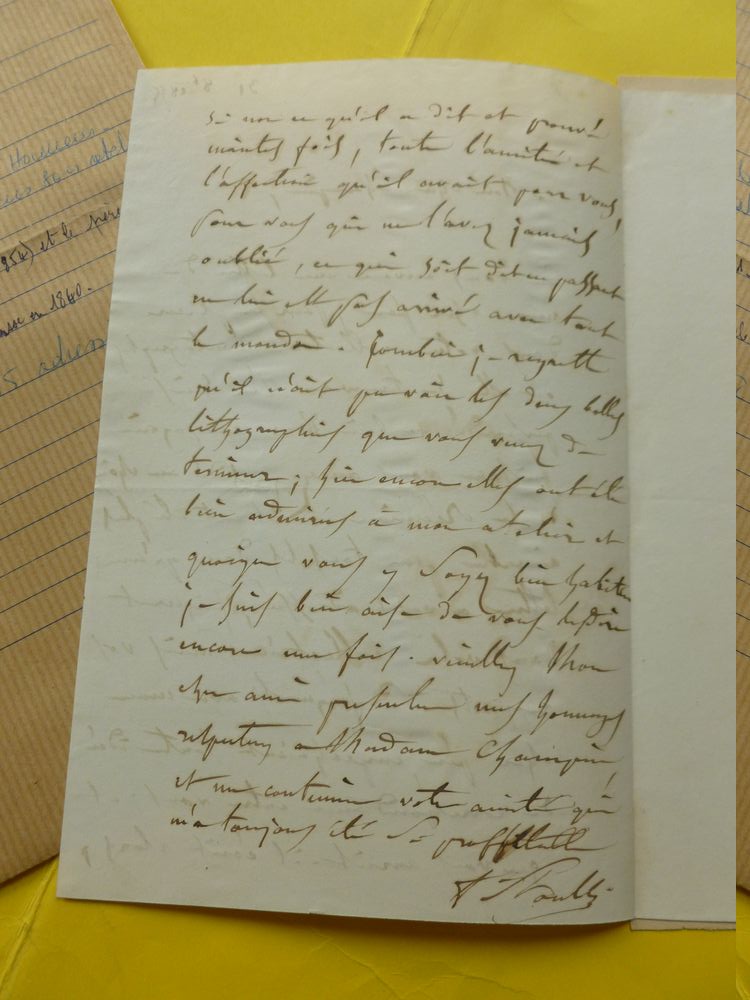 Houssiens
954) et le
en 1840.
5
si non ce qu'il a dit et prouvé
maintes fois, toute l'amitié et
l'affection qu'il avait pour vous,
pour vous qui ne l'avez jamais
oublié, ce qui soit dit en passant
n'est pas arrivé avec tout
le monde. Combien je regrette
qu'il n'ait pu voir les deux belles
lithographies que vous venez de
terminer; hier encore elles ont été
bien admirées à mon atelier et
quoique vous y soyez bien habitué
je suis bien aise de vous le dire
encore une fois. veuillez Mon
cher ami présenter mes hommages
respectueux a Madame
et me continuer votre amitié qui
m'a toujours été si